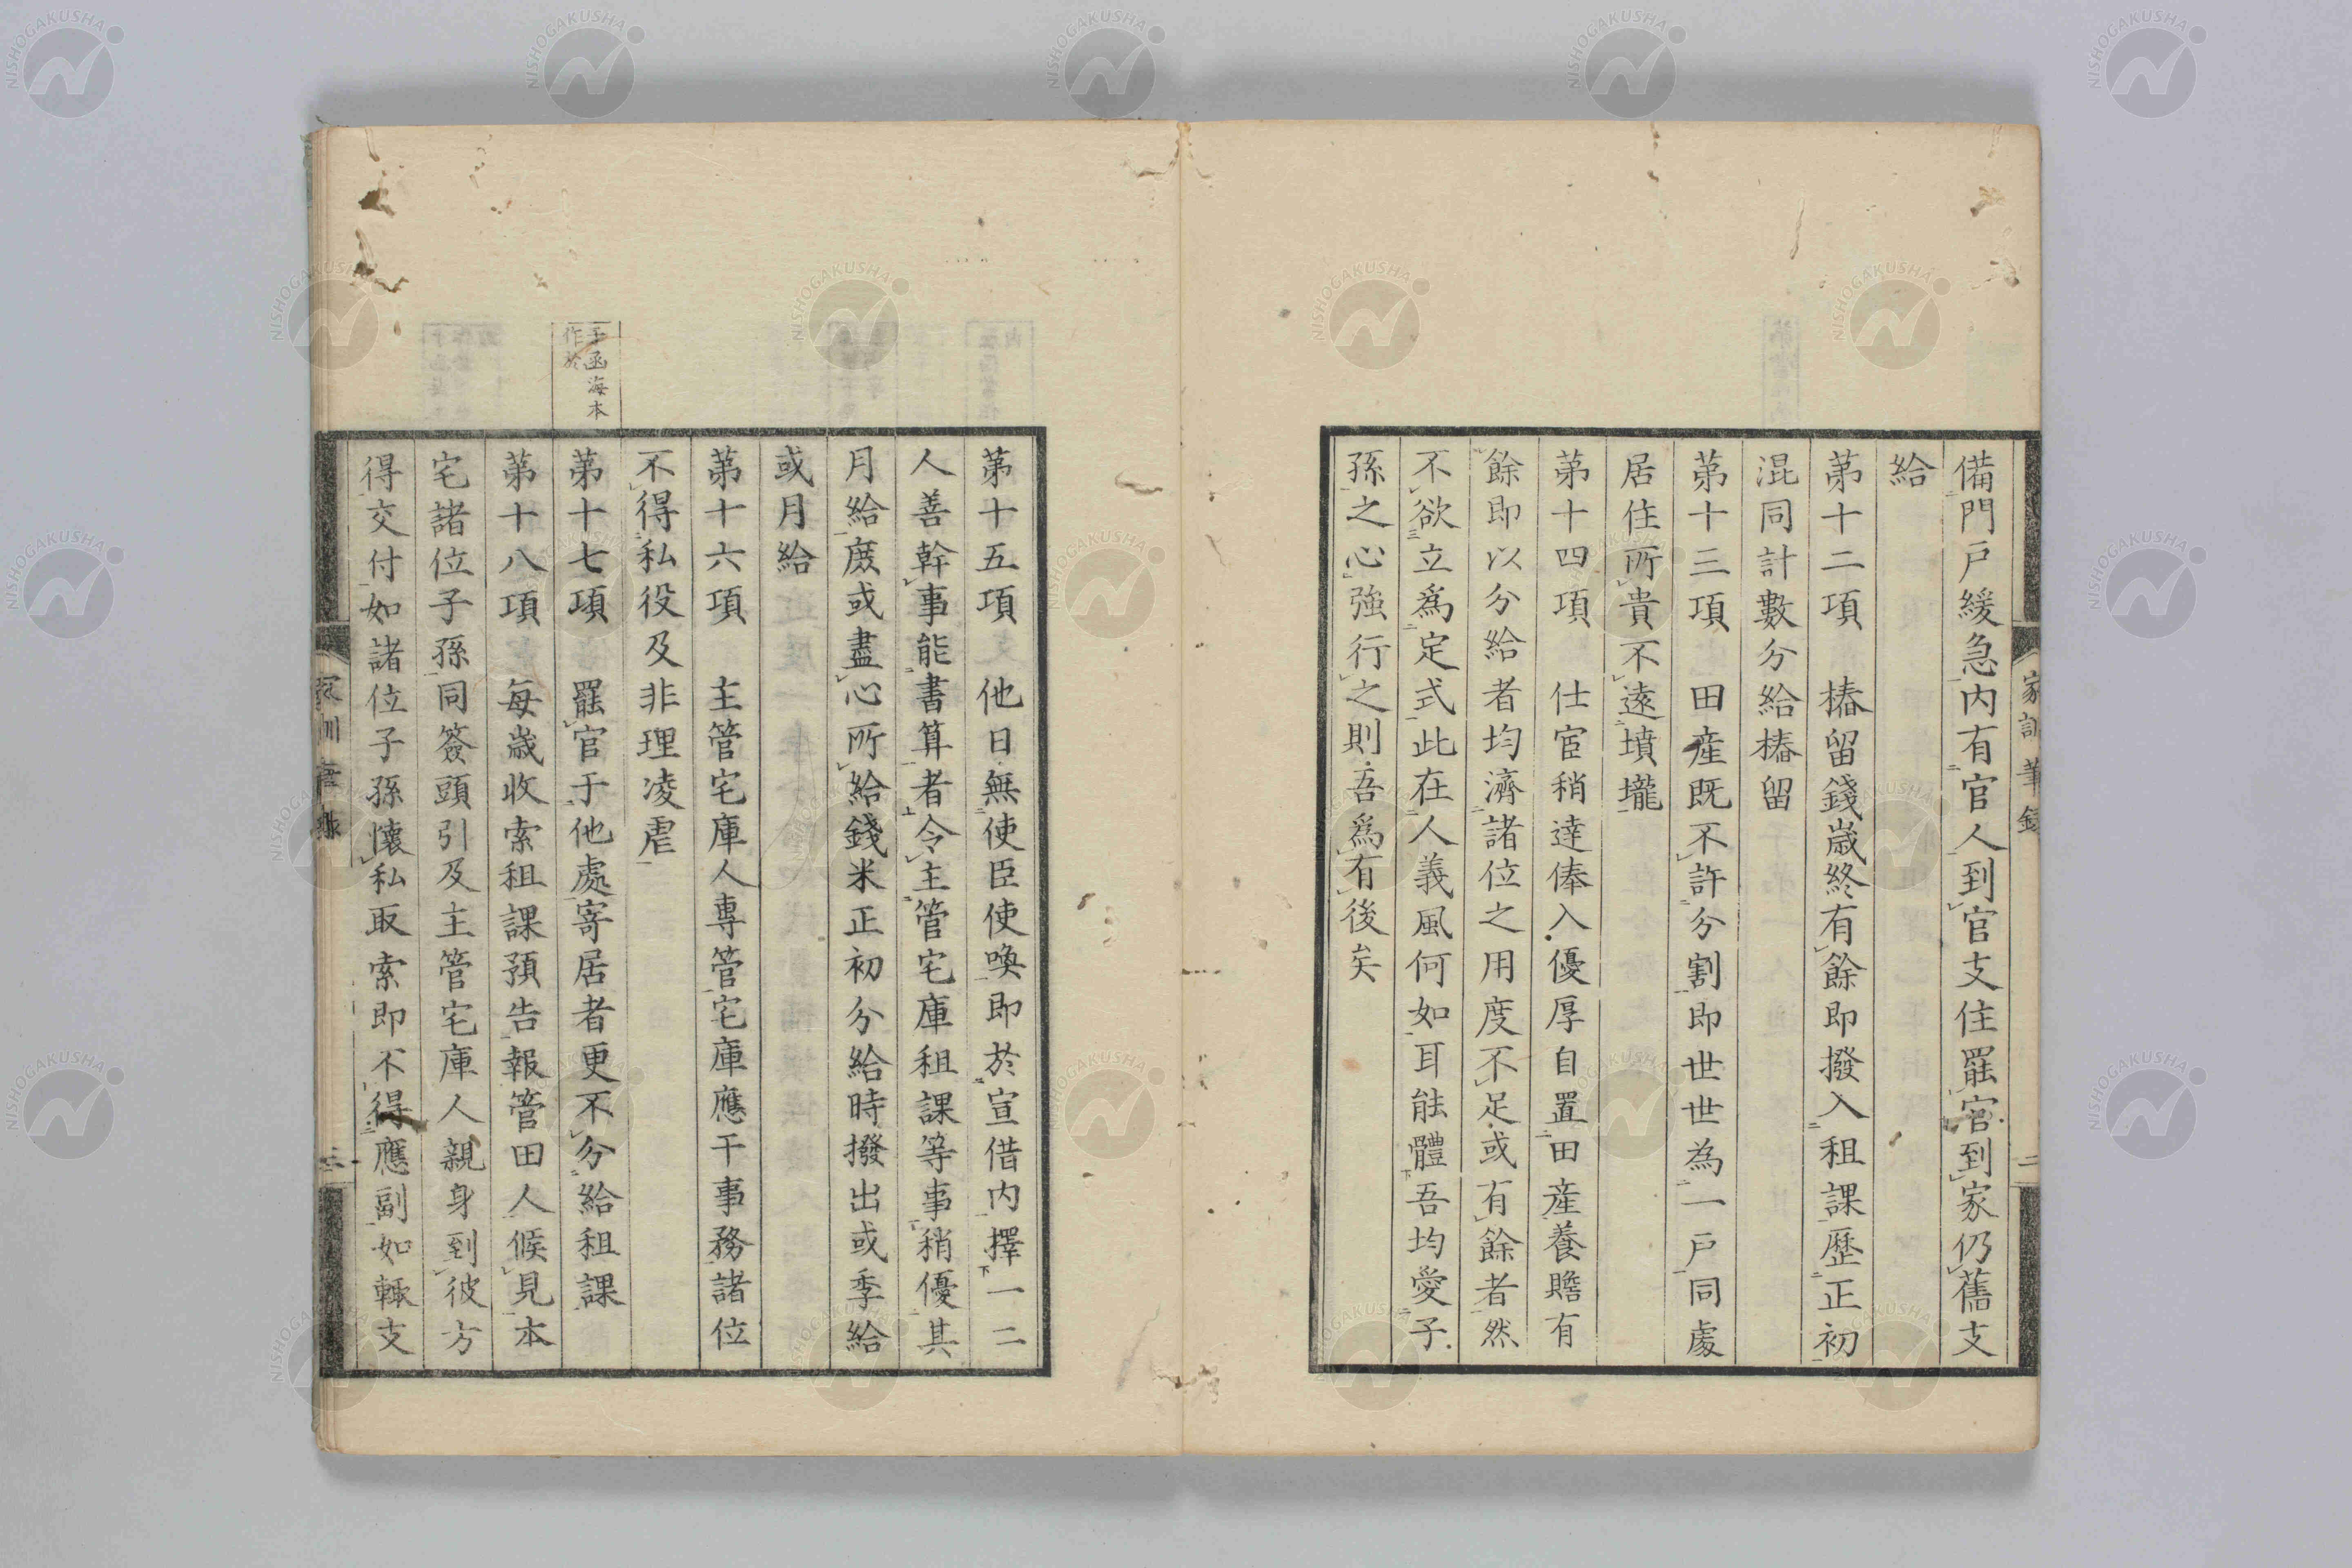 備門戸緩急内有官人到官支住罷官到家仍舊支
給
第十二項　椿留錢歳終有餘即撥入租課歷正初
混同計數分給椿留
第十三項　田産既不許分割即世世為一戸同處
居住所貴不遠墳壠
第十四項　仕宦稍達俸入優厚自置田産養贍有
餘即以分給者均濟諸位之用度不足或有餘者然
不欲立爲定式此在人義風何如耳能體吾均愛子
孫之心強行之則吾爲有後矣
家訓筆録
二
第十五項　他日無使臣使喚即於宣借内擇一二
人善幹事能書算者令主管宅庫租課等事稍優其
月給廐或盡心所給錢米正初分給時撥出或季給
或月給
第十六項　主管宅庫人專管宅庫應干事務諸位
不得私役及非理凌虐
于函海本
作於
第十七項　罷官于他處寄居者更不分給租課
第十八項　每歳收索租課預告報管田人候見本
宅諸位子孫同簽頭引及主管宅庫人親身到彼方
得交付如諸位子孫懷私取索即不得應副如輒支
家訓筆録
三
NISHOGAKUSHA